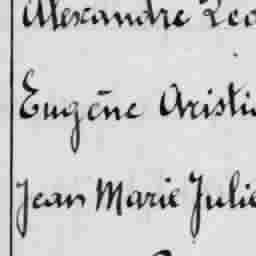 Alexandre Leo
Eugène Aristi
Jean Marie Julie